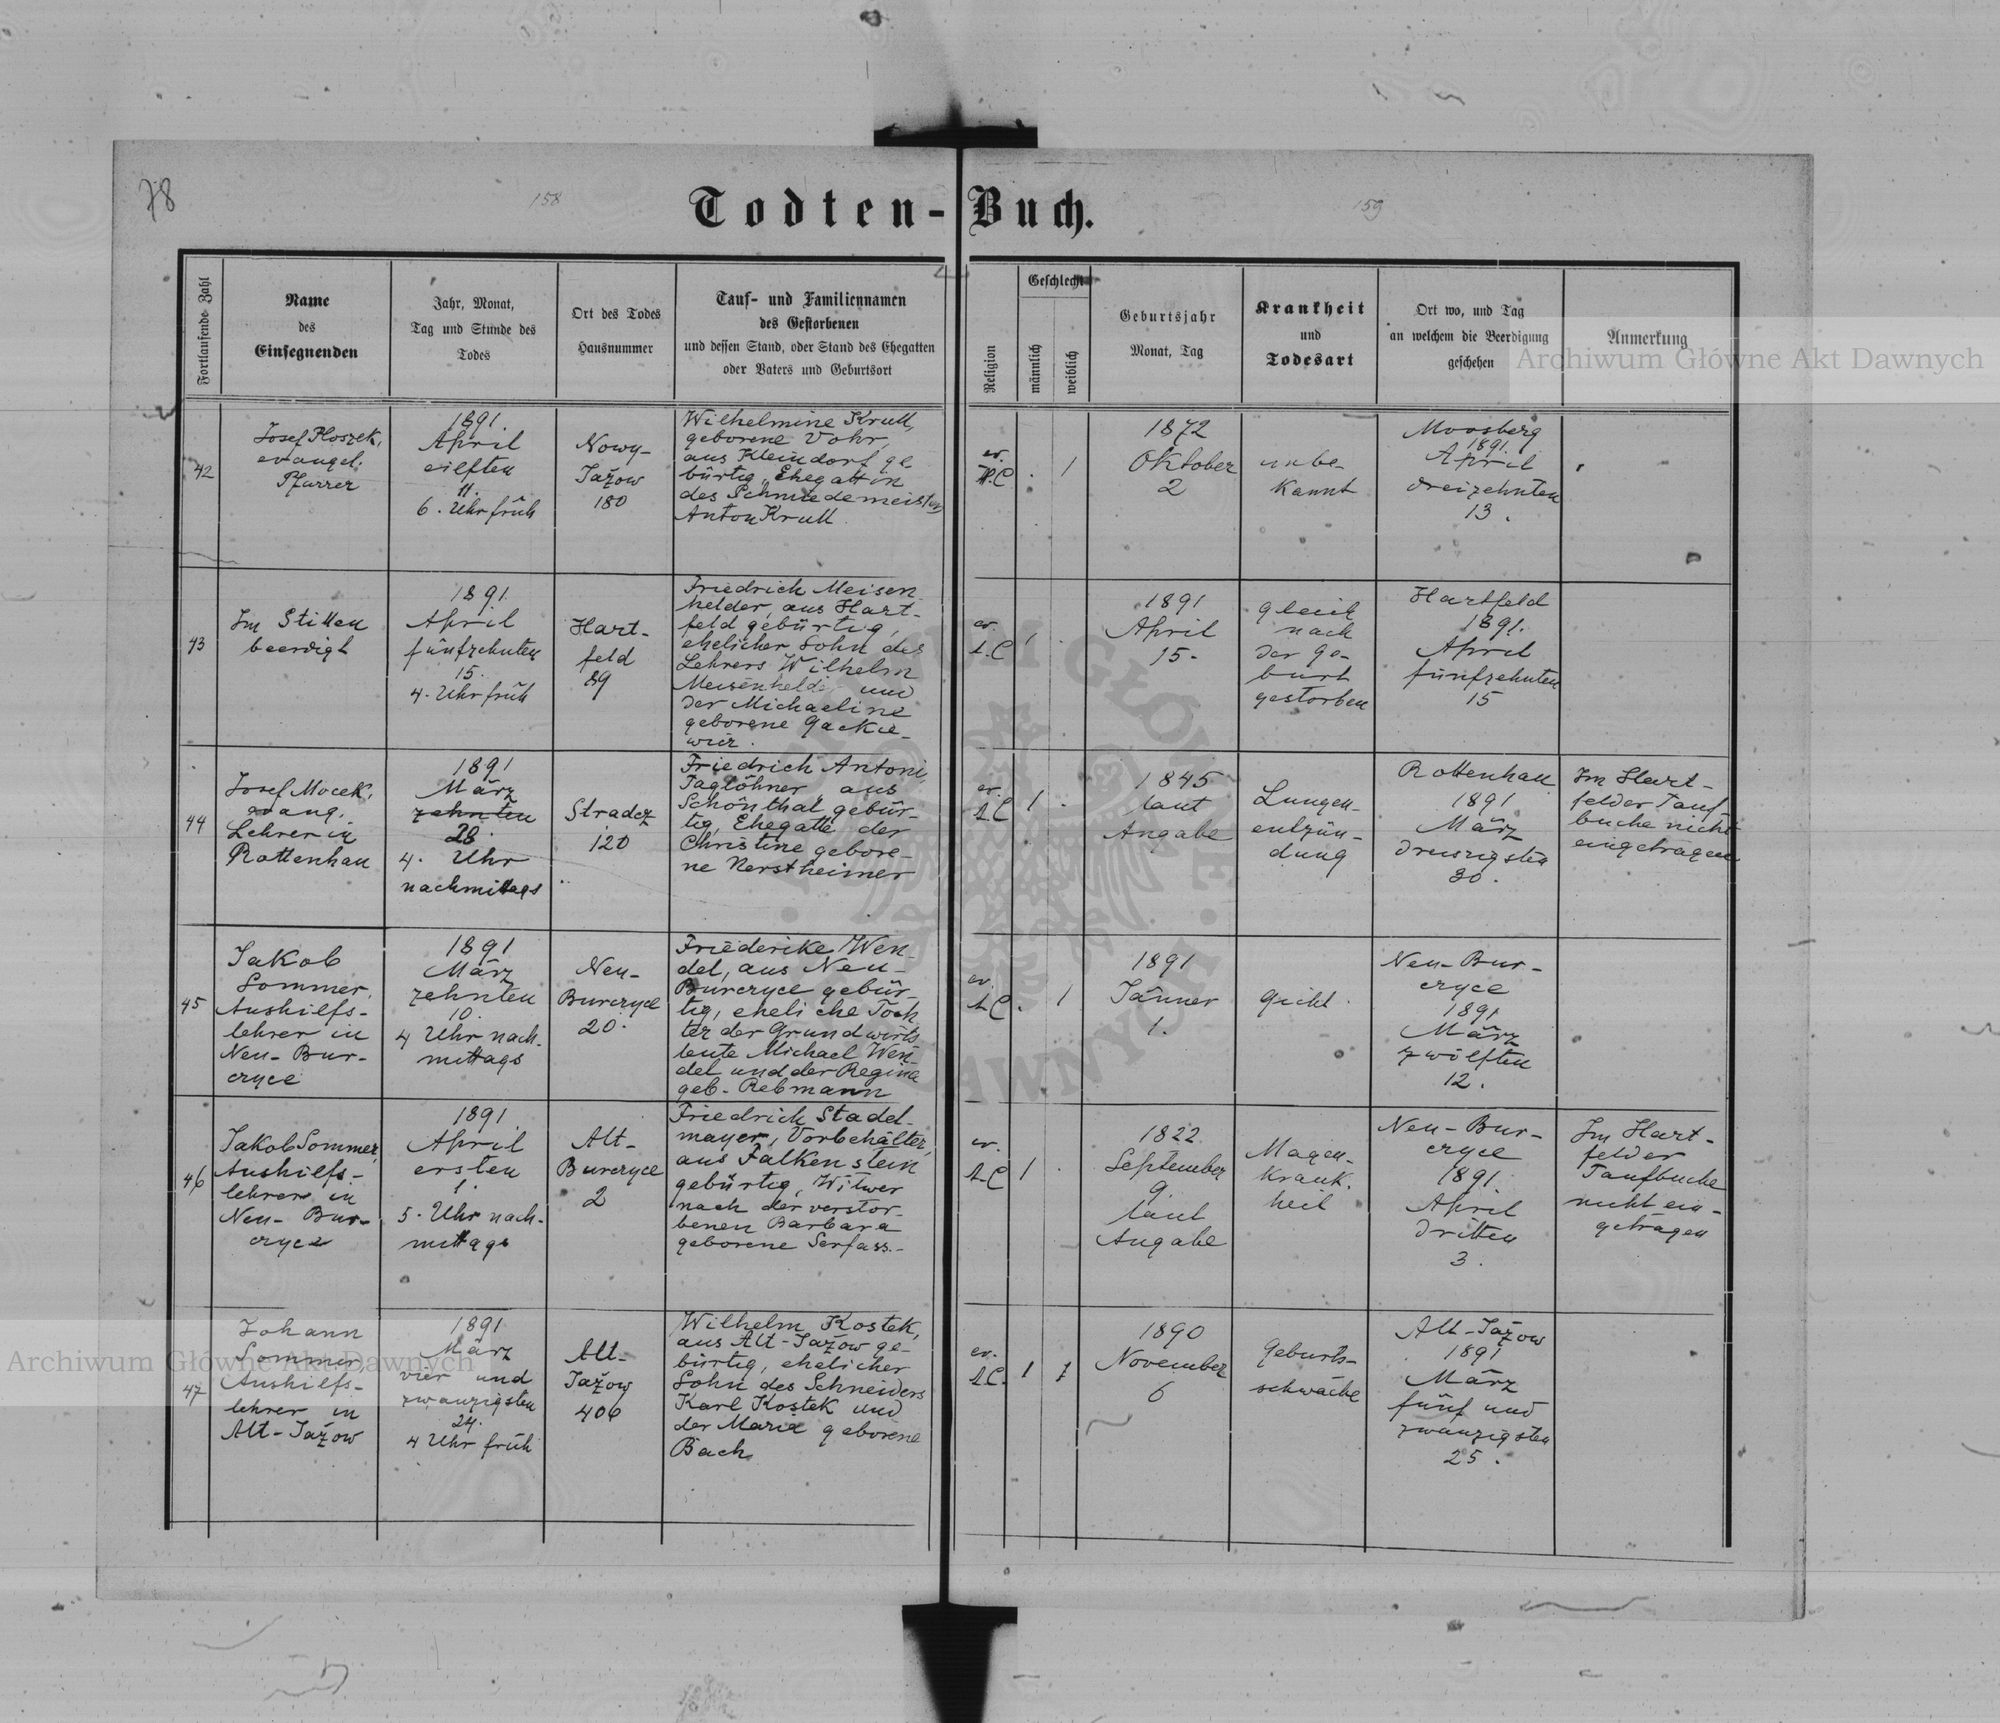 78
158
Todten-Buch.
159
Fortlaufende Zahl
Name
des
Einsegnenden
Jahr, Monat,
Tag und Stunde des
Todes
Ort des Todes
Hausnummer
Tauf- und Familiennamen
des Gestorbenen
und dessen Stand, oder Stand des Ehegatten
oder Vaters und Geburtsort
Religion
Geschlecht
männlich
weiblich
Geburtsjahr
Monat, Tag
Krankheit
und
Todesart
Ort wo, und Tag
an welchem die Beerdigung
geschehen
Anmerkung
Archiwum Główne Akt Dawnych
42
Josef Ploszek,
evangel.
Pfarrer
1891.
April
eilften
11.
6. Uhr früh
Nowy-
Jażow
180
Wilhelmine Krull,
geborene Vohr,
aus Kleindorf ge-
bürtig, Ehegattin
des Schmiedemeisters
Anton Krull
ev.
H.C
1
1872
Oktober
2
unbe-
kannt
Moosberg
1891.
April
dreizehnten
13.
43
Im Stillen
beerdigt
1891.
April
fünfzehnten
15.
4. Uhr früh
Hart-
feld
89
Friedrich Meisen
helder, aus Hart-
feld gebürtig,
ehelicher Sohn des
Lehrers Wilhelm
Meisenhelder und
der Michaeline
geborene Gackie-
wicz.
ev.
A.C
1
1891
April
15.
gleich
nach
der Ge-
burt
gestorben
Hartfeld
1891.
April
fünfzehnten
15
44
Josef Mocek,
evang.
Lehrer in
Rottenhan
1891
März
zehnten
28.
4. Uhr
nachmittags
Stradcz
120
Friedrich Antoni,
Taglöhner, aus
Schönthal gebür-
tig, Ehegatte der
Christine gebore-
ne Nerstheimer
ev.
A.C
1
1845
laut
Angabe
Lungen-
entzün-
dung
Rottenhan
1891
März
dreiszigsten
30.
Im Hart-
felder Tauf
buche nicht
eingetragen
45
Jakob
Sommer,
Aushilfs-
lehrer in
Neu-Bur-
czyce
1891
März
zehnten
10.
4 Uhr nach-
mittags
Neu-
Burczyce
20.
Friederike Wen-
del, aus Neu-
Burczyce gebür-
tig, eheliche Toch
ter der Grundwirts
leute Michael Wen-
del und der Regina
geb. Rebmann
ev.
A.C.
1
1891
Jänner
1.
Gicht.
Neu-Bur-
czyce
1891
März
zwölften
12.
46
Jakob Sommer,
Aushilfs-
lehrer in
Neu-Bur-
czyce
1891.
April
ersten
1.
5. Uhr nach-
mittags
Alt-
Burczyce
2
Friedrich Stadel-
mayer, Vorbehälter,
aus Falkenstein
gebürtig, Witwer
nach der verstor-
benen Barbara
geborene Serfass.-
ev.
A.C
1
1822
September
9.
laut
Angabe
Magen-
krank-
heit
Neu-Bur-
czyce
1891.
April
dritten
3.
Im Hart-
felder
Taufbuche
nicht ein-
getragen
47
Johann
Sommer,
Aushilfs-
lehrer in
Alt-Jażow
1891
März
vier und
zwanzigsten
24.
4 Uhr früh
Alt-
Jażow
406
Wilhelm Kostek,
aus Alt-Jażow ge-
bürtig, ehelicher
Sohn des Schneiders
Karl Kostek und
der Maria geborene
Bach
ev.
A.C.
1
1
1890
November
6
Geburts-
schwäche
Alt-Jażow
1891
März
fünf und
zwanzigsten
25.
Archiwum Główne Akt Dawnych